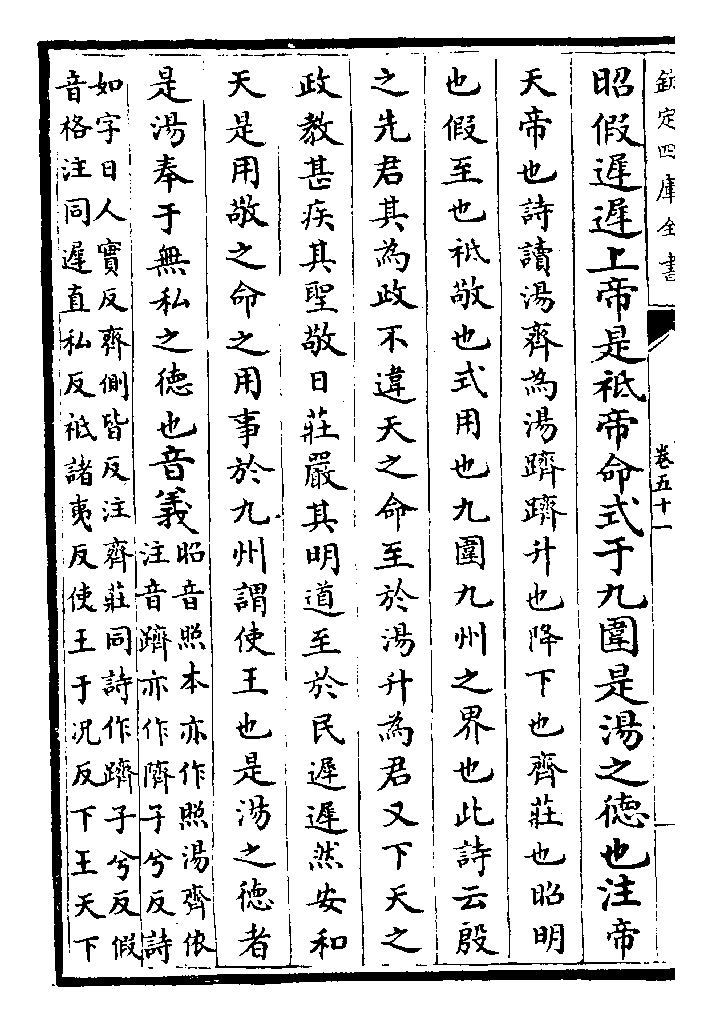 欽定四庫全書
卷五十一
昭假遲遲上帝是祗帝命式于九圍是湯之德也注帝
天帝也詩讀湯齊為湯躋躋升也降下也齊莊也昭明
也假至也祗敬也式用也九圍九州之界也此詩云殷
之先君其為政不違天之命至於湯升為君又下天之
政教甚疾其聖敬日莊嚴其明道至於民遲遲然安和
天是用敬之命之用事於九州謂使王也是湯之德者
是湯奉于無私之德也音義
昭音照本亦作照湯齊依
注音躋亦作隮子兮反詩
如字日人實反齊側皆反注齊莊同詩作躋子兮反假
音格注同遲直私反祗諸夷反使王于况反下王天下